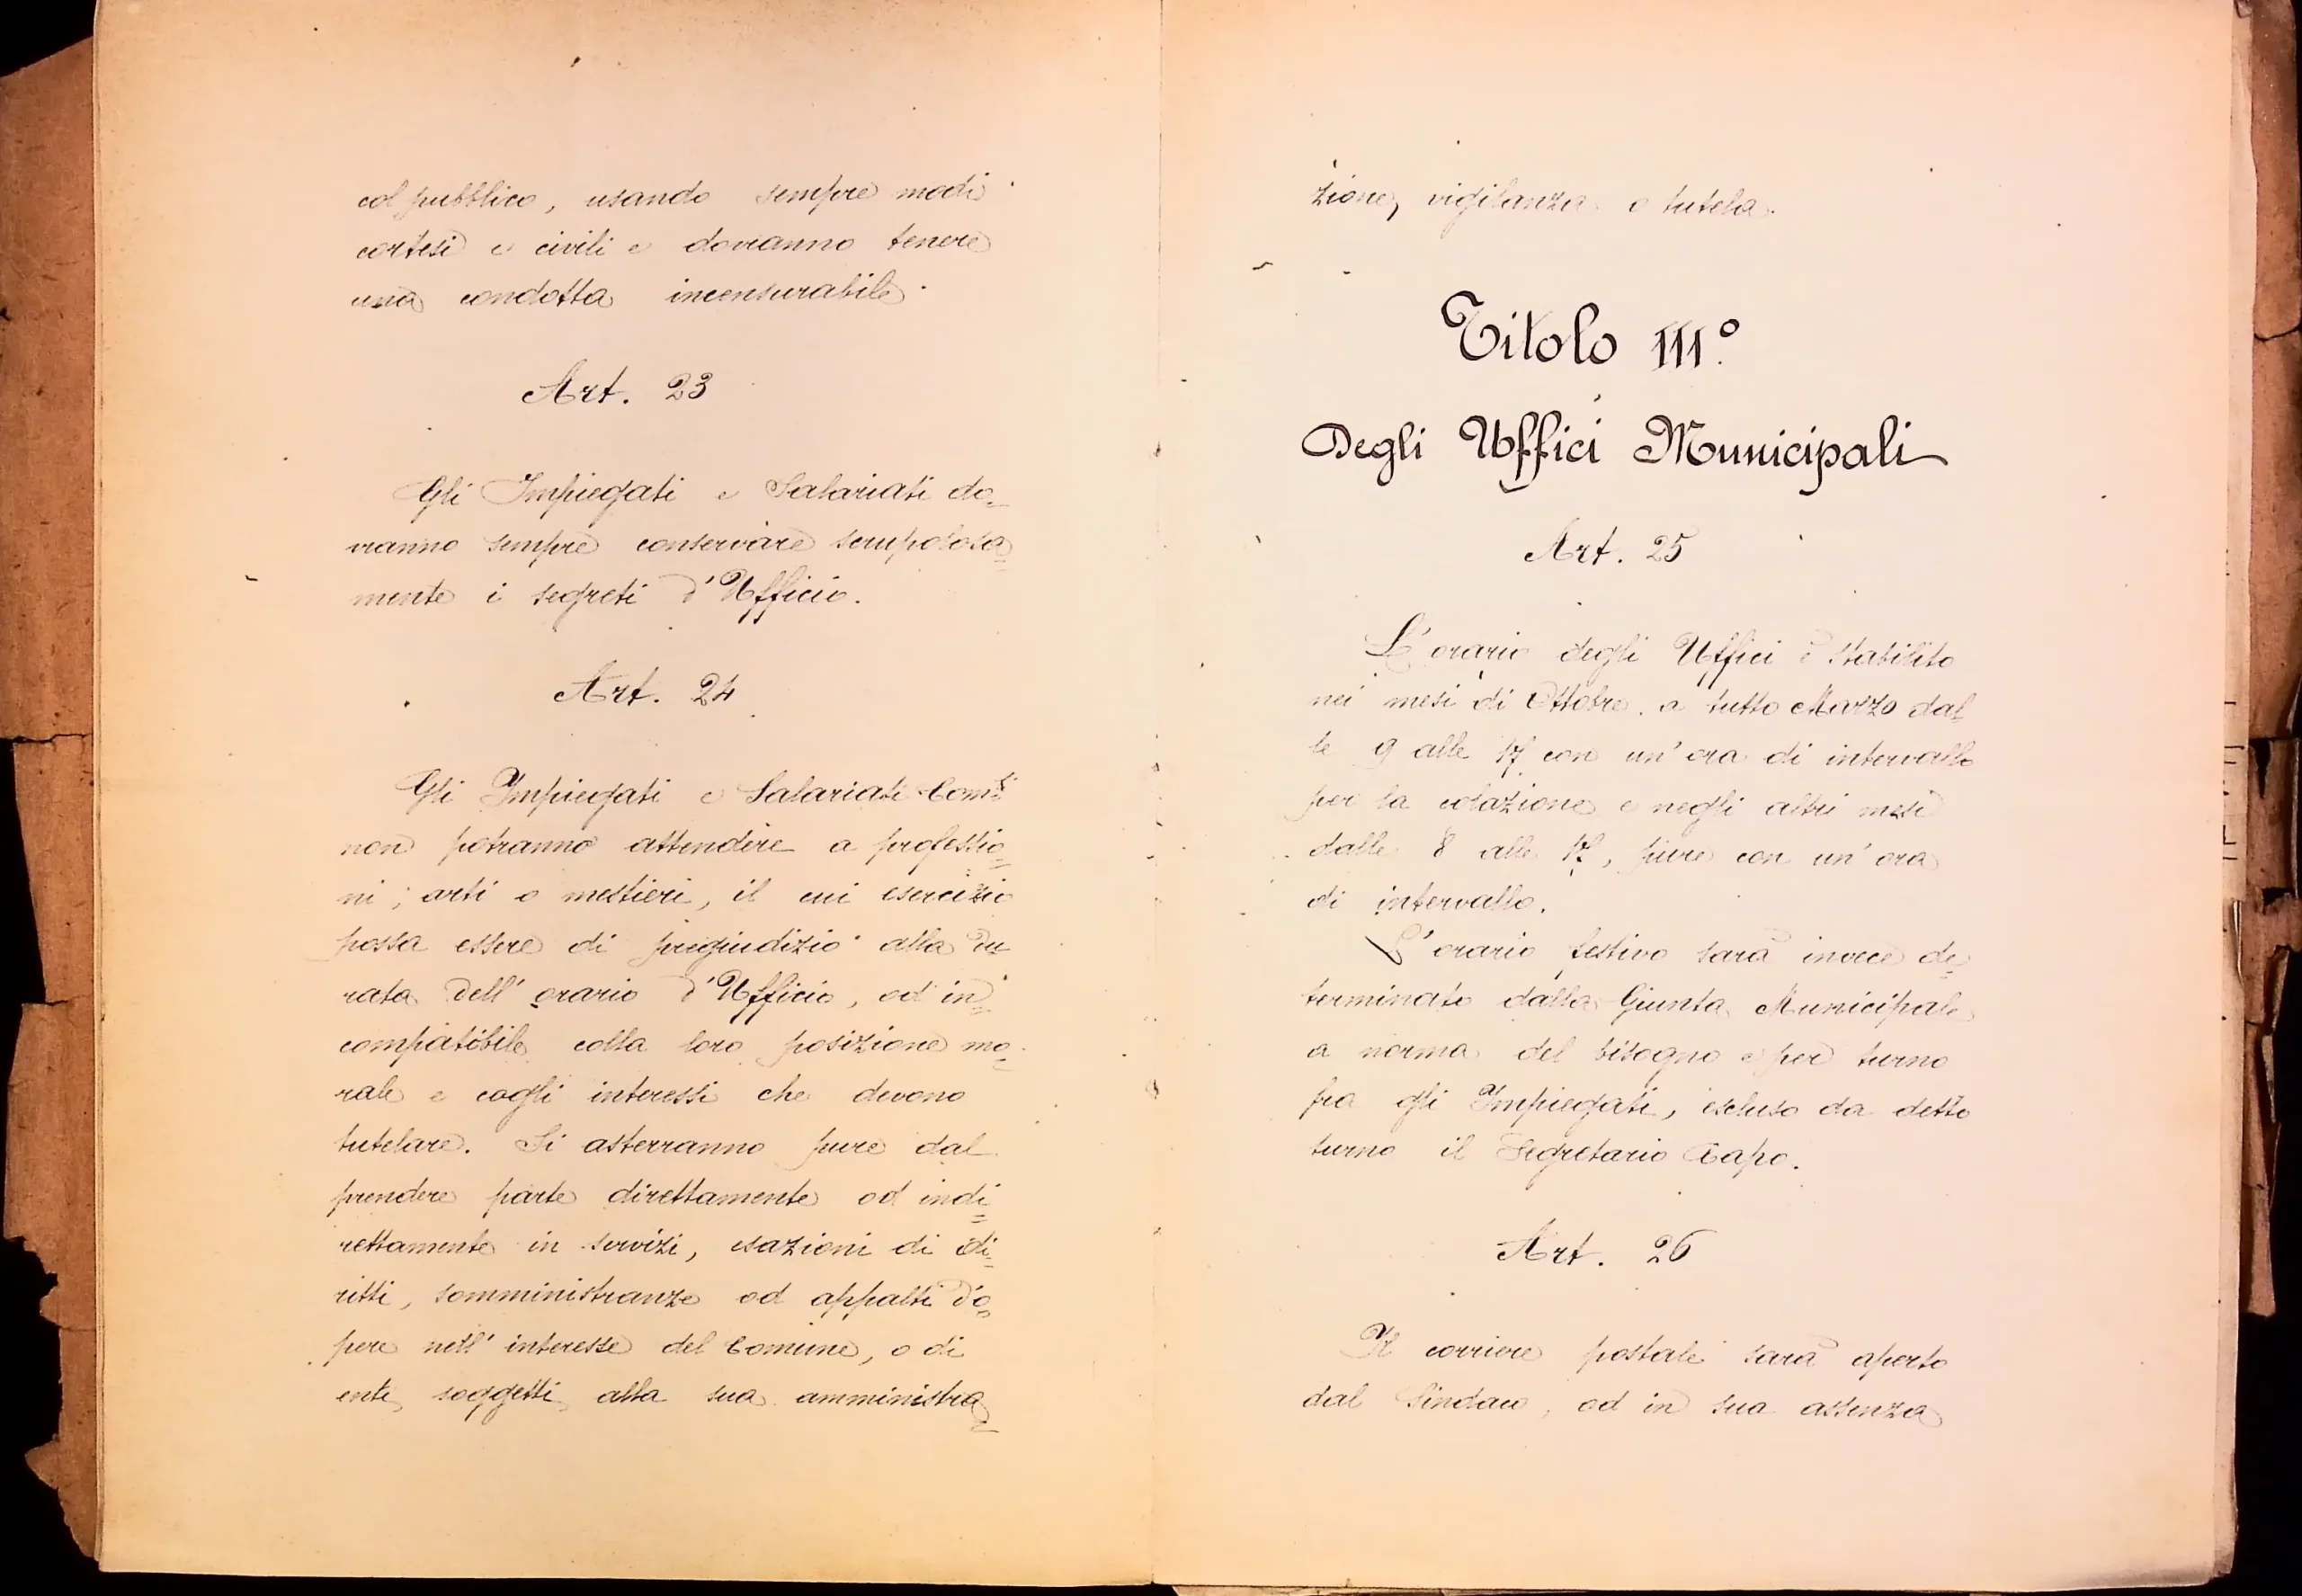 col pubblico, usando sempre modi
cortesi e civili e dovranno tenere
una condotta incensurabile.
Art. 23
Gli Impiegati e Salariati do=
vranno sempre conservare scrupolosa=
mente i segreti d'Ufficio.
Art. 24
Gli Impiegati e Salariati Com.li
non potranno attendere a professio=
ni, arti o mestieri, il cui esercizio
possa essere di pregiudizio alla du
rata dell'orario d'Ufficio, od in=
compatibile colla loro posizione mo=
rale e cogli interessi che devono
tutelare. Si asterranno pure dal
prendere parte direttamente od indi=
rettamente in servizi, esazioni di di=
ritti, somministranze od appalti d'o=
pere nell'interesse del Comune, o di
enti soggetti alla sua amministra=
zione, vigilanza o tutela.
Titolo III.°
Degli Uffici Municipali
Art. 25
L'orario degli Uffici è stabilito
nei mesi di Ottobre a tutto Marzo dal=
le 9 alle 17 con un'ora di intervallo
per la colazione e negli altri mesi
dalle 8 alle 17, pure con un'ora
di intervallo.
L'orario festivo sarà invece de=
terminato dalla Giunta Municipale
a norma del bisogno e per turno
fra gli Impiegati, escluso da detto
turno il Segretario Capo.
Art. 26
Il corriere postale sarà aperto
dal Sindaco, od in sua assenza